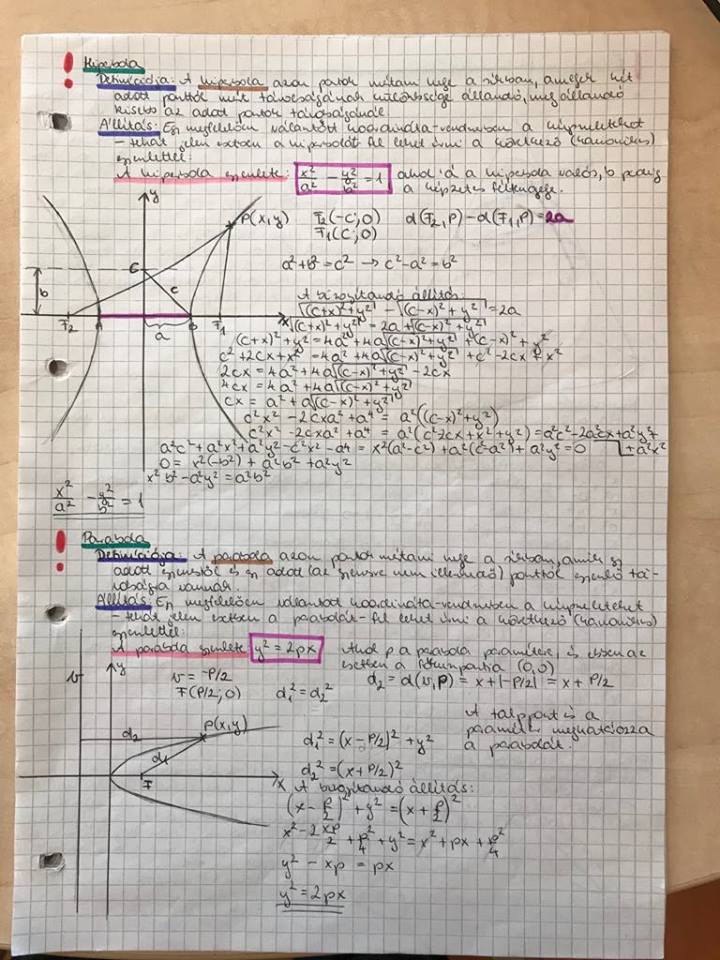 ! Hiperbola
Definíciója: A hiperbola azon pontok mértani helye a síkban, amelyek két
adott ponttól mért távolságának különbsége állandó, meg állandó
kisebb az adott pontok távolságánál
Állítás: Egy megfelelően választott koordináta-rendszerben a képpleteket
– tehát jelen esetben a hiperbolát fel lehet írni a következő (kanonikus)
egyenlettel:
A hiperbola egyenlete: x²/a² - y²/b² = 1 ahol 'a' a hiperbola valós, b pedig
a képzetes féltengelye.
y
P(x,y) F₂(-c;0) d(F₂,P) - d(F₁,P) = 2a
F₁(c;0)
C
c
b
a²+b²=c² → c²-a²=b²
F₂ A a B F₁ x
A bizonyítandó állítás:
√((c+x)²+y²) - √((c-x)²+y²) = 2a
√((c+x)²+y²) = 2a+√((c-x)²+y²)
(c+x)²+y² = 4a²+4a√((c-x)²+y²) + (c-x)²+y²
c²+2cx+x² = 4a²+4a√((c-x)²+y²) + c²-2cx+x²
2cx = 4a²+4a√((c-x)²+y²) -2cx
4cx = 4a²+4a√((c-x)²+y²)
cx = a²+a√((c-x)²+y²)
c²x² - 2cxa² + a⁴ = a²((c-x)²+y²)
c²x² - 2cxa² + a⁴ = a²(c²-2cx+x²+y²) = a²c²-2a²cx+a²y²+
+a²x²
a²c²+a²x²+a²y²-c²x²-a⁴ = x²(a²-c²)+a²(c²-a²)+a²y²=0
0 = x²(-b²)+a²b²+a²y²
x²b²-a²y²=a²b²
x²/a² - y²/b² = 1
! Parabola
Definíciója: A parabola azon pontok mértani helye a síkban, amik egy
adott egyenestől és egy adott (az egyenesre nem illeszkedő) ponttól egyenlő tá-
volságra vannak.
Állítás: Egy megfelelően választott koordináta-rendszerben a képpleteket
– tehát jelen esetben a parabolát – fel lehet írni a következő (kanonikus)
egyenlettel:
A parabola egyenlete y²=2px Ahol p a parabola paramétere, és ebben az
esetben a (0,0)
v y
v = -P/2 d₂ = d(v,P) = x+|-P/2| = x + P/2
F(P/2;0) d₁²=d₂²
A talppont és a
paraméter meghatározza
a parabolát.
P(x,y)
d₂
d₁
F x
d₁²=(x-P/2)²+y²
d₂²=(x+P/2)²
A bizonyítandó állítás:
(x-p/2)²+y²=(x+p/2)²
x²-2xp/2+p²/4+y²=x²+px+p²/4
y²-xp=px
y²=2px